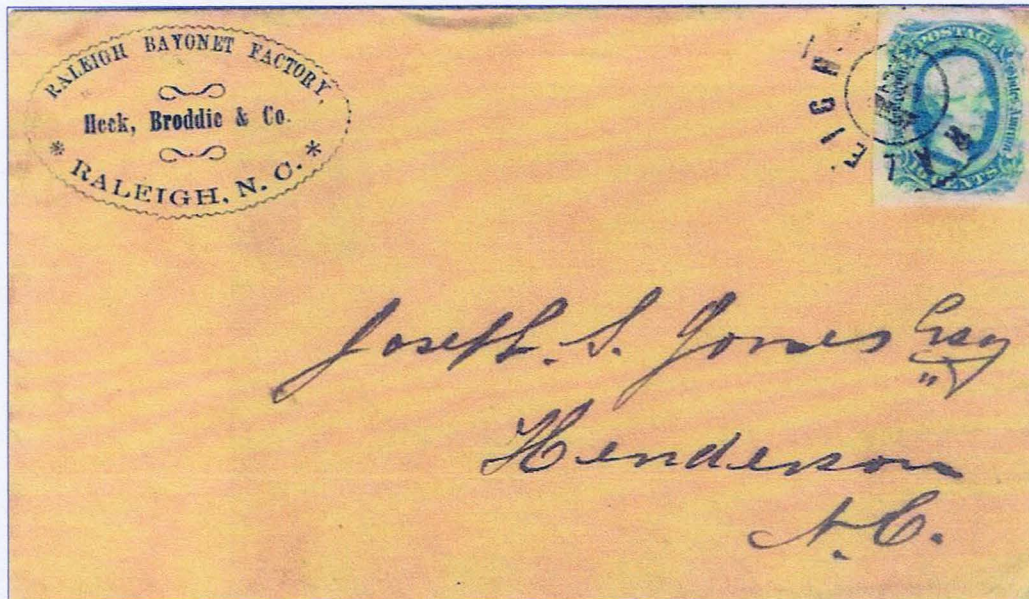 RALEIGH BAYONET FACTORY,
Heck, Broddie & Co.
* RALEIGH, N. C. *
POSTAGE
CENTS
Joseph. S. Jones Esq
Henderson
N.C.